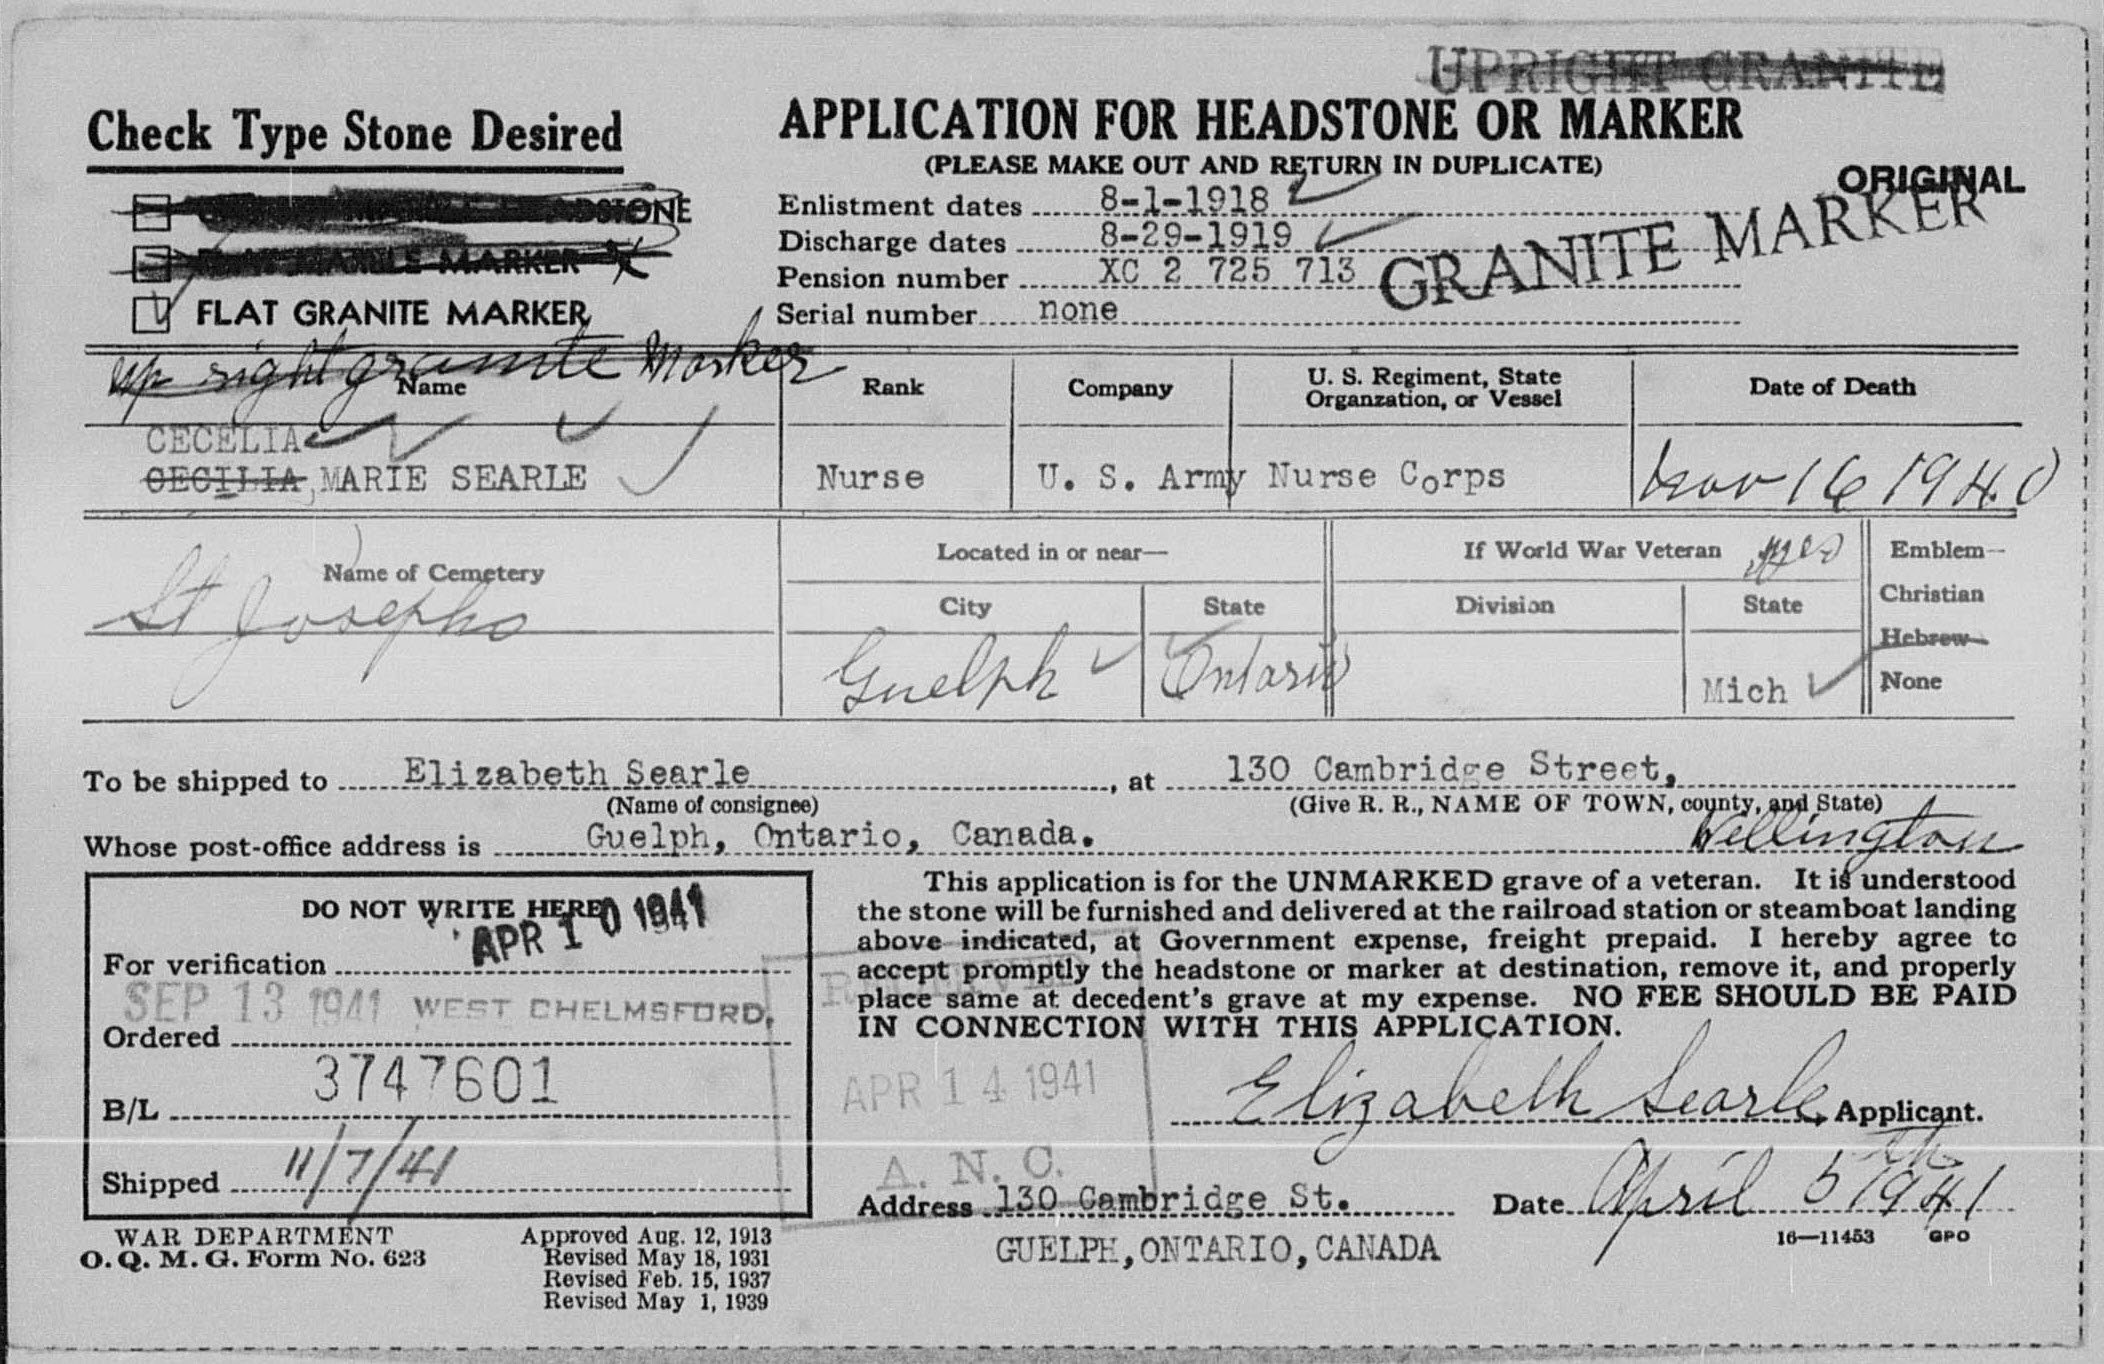 UPRIGHT GRANITE
Check Type Stone Desired
APPLICATION FOR HEADSTONE OR MARKER
(PLEASE MAKE OUT AND RETURN IN DUPLICATE)
ORIGINAL
HEADSTONE
MARBLE MARKER
FLAT GRANITE MARKER
Up right granite Marker
Enlistment dates 8-1-1918
Discharge dates 8-29-1919
Pension number XC 2 725 713
Serial number none
GRANITE MARKER
Name Rank Company U. S. Regiment, State Organzation, or Vessel Date of Death
CECELIA
CECILIA MARIE SEARLE Nurse U. S. Army Nurse Corps Nov 16 1940
Name of Cemetery Located in or near— If World War Veteran yes Emblem—
City State Division State Christian
Hebrew
None
St Josephs Guelph Ontario Mich
To be shipped to Elizabeth Searle, at 130 Cambridge Street,
(Name of consignee) (Give R. R., NAME OF TOWN, county, and State)
Whose post-office address is Guelph, Ontario, Canada. Wellington
DO NOT WRITE HERE
APR 10 1941
For verification
SEP 13 1941 WEST CHELMSFORD,
Ordered
3747601
B/L
Shipped 11/7/41
This application is for the UNMARKED grave of a veteran. It is understood
the stone will be furnished and delivered at the railroad station or steamboat landing
above indicated, at Government expense, freight prepaid. I hereby agree to
accept promptly the headstone or marker at destination, remove it, and properly
place same at decedent's grave at my expense. NO FEE SHOULD BE PAID
IN CONNECTION WITH THIS APPLICATION.
RECEIVED
APR 14 1941
A. N. C.
Elizabeth Searle, Applicant.
Address 130 Cambridge St. Date April 5th 1941
GUELPH, ONTARIO, CANADA
16—11453 GPO
WAR DEPARTMENT
O. Q. M. G. Form No. 623
Approved Aug. 12, 1913
Revised May 18, 1931
Revised Feb. 15, 1937
Revised May 1, 1939